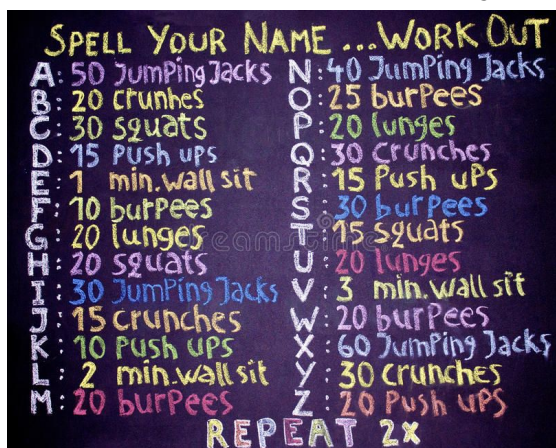 SPELL YOUR NAME ... WORK OUT
A: 50 JumPing Jacks
B: 20 crunhes
C: 30 squats
D: 15 Push ups
E: 1 min.wall sit
F: 10 burpees
G: 20 lunges
H: 20 squats
I: 30 JumPing Jacks
J: 15 crunches
K: 10 Push ups
L: 2 min.wall sit
M: 20 burpees
N: 40 JumPing Jacks
O: 25 burpees
P: 20 lunges
Q: 30 crunches
R: 15 Push uPs
S: 30 burpees
T: 15 squats
U: 20 lunges
V: 3 min.wall sit
W: 20 burpees
X: 60 JumPing Jacks
Y: 30 crunches
Z: 20 Push uPs
REPEAT 2x
dreamstime